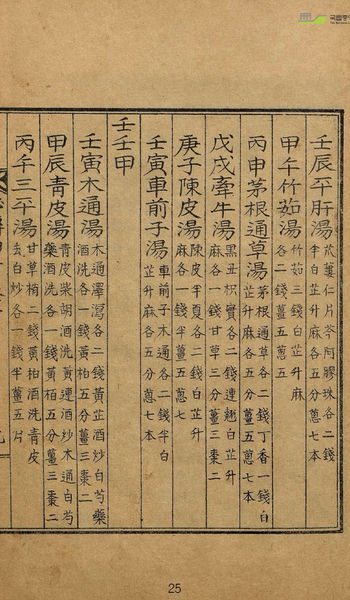 壬辰平肝湯 瓜蔞仁片芩阿膠珠各二錢
李白芷升麻各五分蔥七本
甲午竹茹湯 竹茹三錢白芷升麻
各二錢薑五蔥五
丙申茅根通草湯 茅根通草各二錢丁香一錢白
芷升麻各五分薑五蔥七本
戊戌牽牛湯 黑丑枳實各二錢連翹白芷升
麻各一錢甘草三分薑三棗二
庚子陳皮湯 陳皮半夏各二錢白芷升
麻各一錢半薑五蔥七
壬寅車前子湯 車前子木通各二錢半白
芷升麻各五分蔥七本
壬壬甲
壬寅木通湯 木通澤瀉各二錢黃芷酒炒白芍藥
酒洗各一錢黃柏五分薑三棗二
甲辰靑皮湯 靑皮柴胡酒洗黃連酒炒木通白芍
藥酒洗各一錢黃栢五分薑三棗二
丙午三平湯 甘草梢二錢黃柏酒洗靑皮
去白炒各一錢半薑五片
25